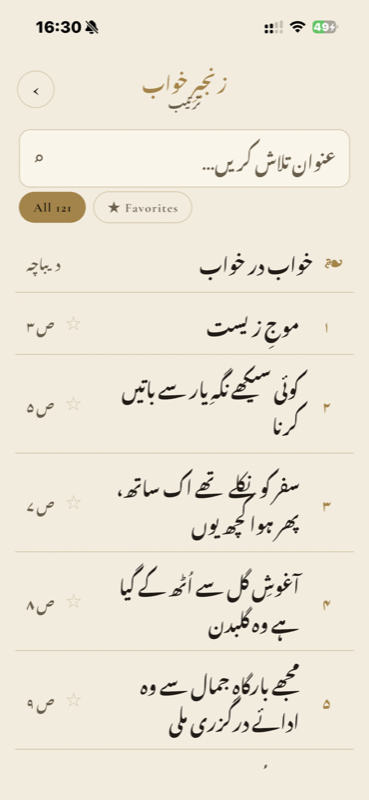 16:30
49
زنجیرِ خواب
ترتیب
عنوان تلاش کریں...
All 121
★ Favorites
خواب در خواب
دیباچہ
۱
موجِ زیست
ص ۳
۲
کوئی سیکھے نگہِ یار سے باتیں
کرنا
ص ۵
۳
سفر کو نکلے تھے اک ساتھ،
پھر ہوا کچھ یوں
ص ۷
۴
آغوشِ گل سے اُٹھ کے گیا
ہے وہ گلبدن
ص ۸
۵
مجھے بارگاہِ جمال سے وہ
ادائے درگزری ملی
ص ۹